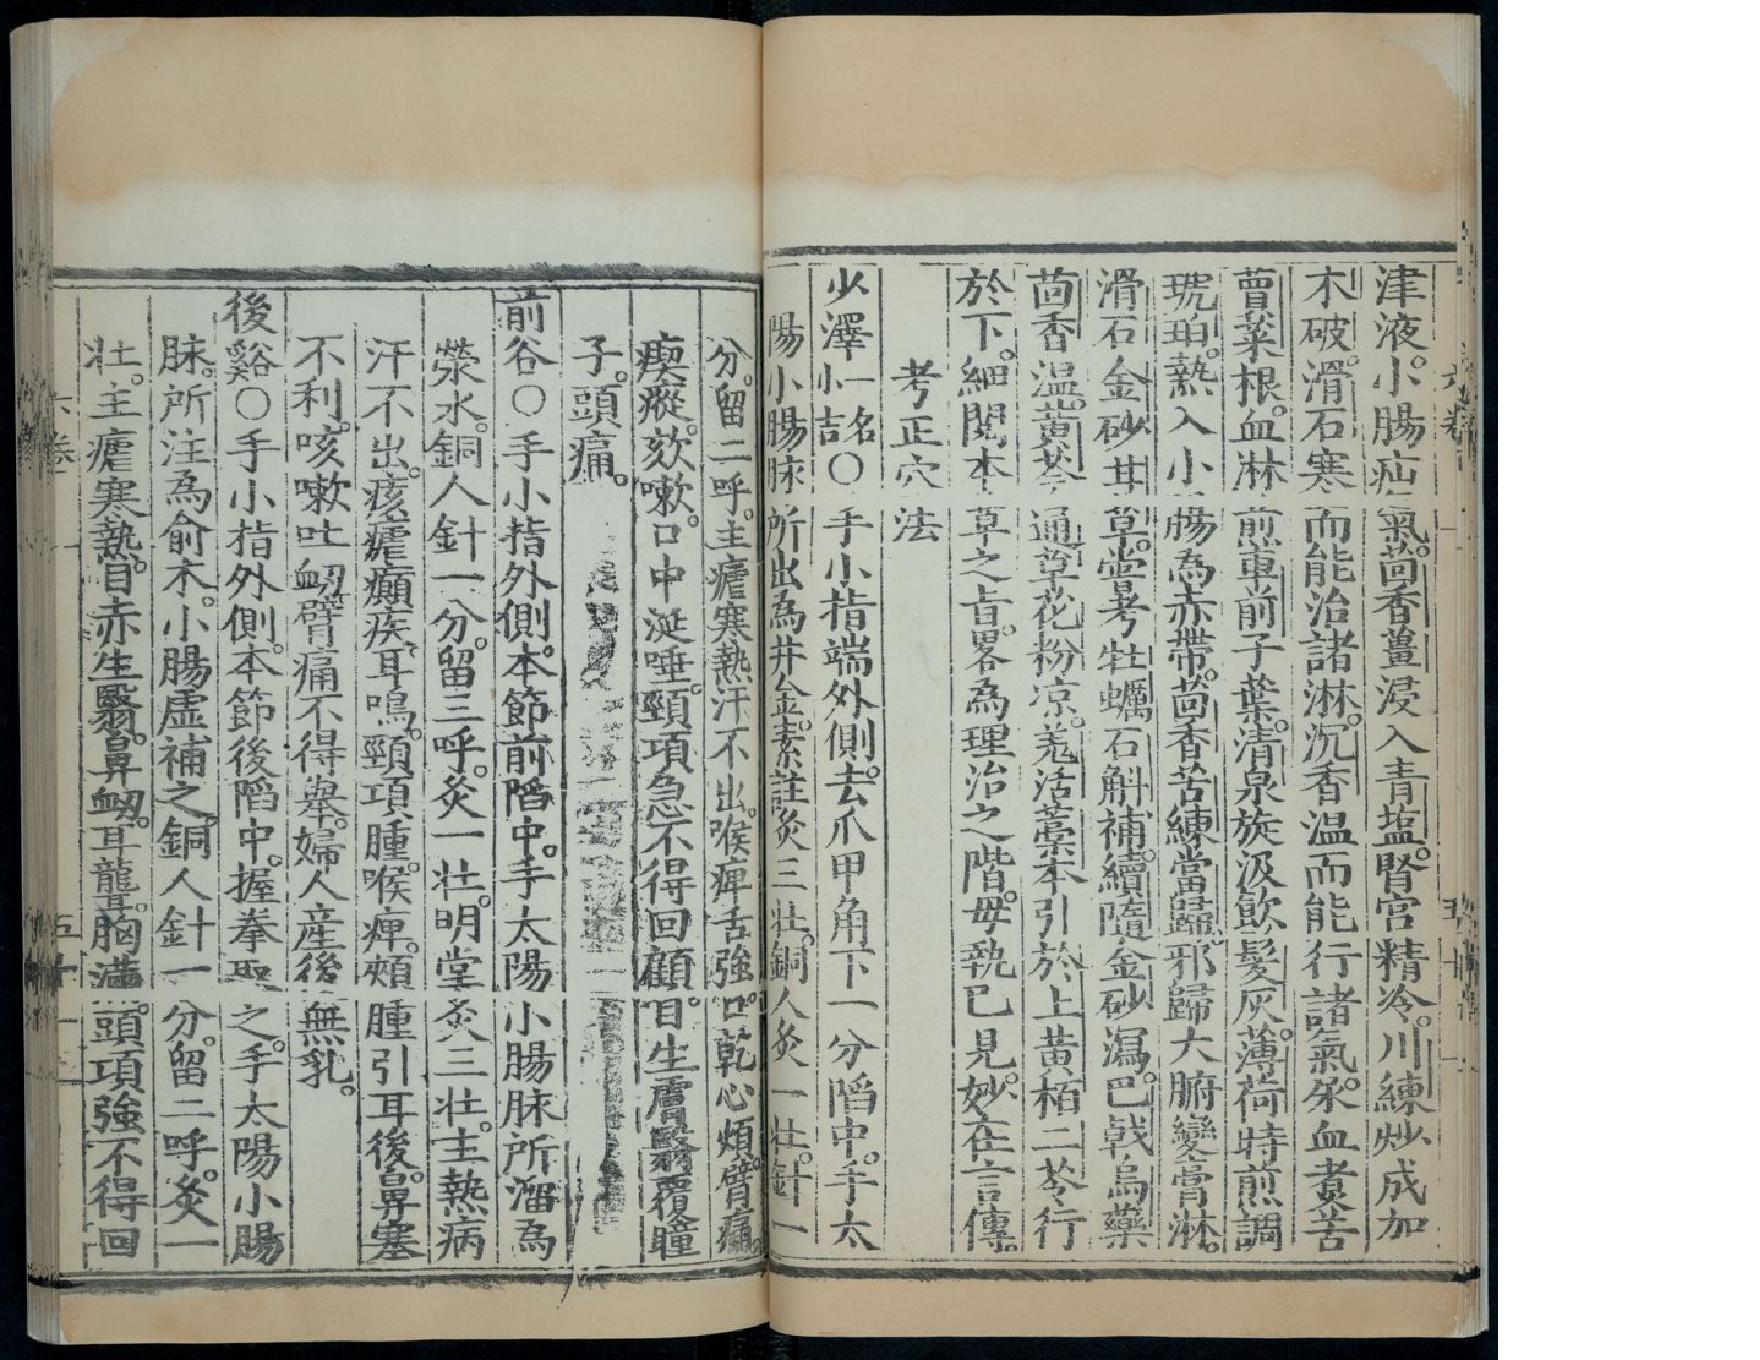 津液小腸疝氣茴香薑浸入青塩腎宮精冷川練炒成加
木破滑石寒而能治諸淋沉香温而能行諸氣尿血煮苦
蕒菜根血淋煎車前子葉清泉旋汲飲髮灰薄荷時煎調
琥珀熱入小腸為赤帶茴香苦練當歸邪歸大腑變膏淋
滑石金砂甘草當考牡蠣石斛補續隨金砂瀉巴戟烏藥
茴香温黃芩通草花粉凉羗活藁本引於上黃栢二苓行
於下細閱本草之旨畧為理治之階毋執已見妙在言傳
考正穴法
少澤一名小吉〇手小指端外側去爪甲角下一分陷中手太
陽小腸脉所出為井金素註灸三壮銅人灸一壮針一
分留二呼主瘧寒熱汗不出喉痺舌強口乾心煩臂痛
瘈瘲欬嗽口中涎唾頸項急不得回顧目生膚翳覆瞳
子頭痛
前谷〇手小指外側本節前陷中手太陽小腸脉所溜為
滎水銅人針一分留三呼灸一壮明堂灸三壮主熱病
汗不出痎瘧癲疾耳鳴頸項腫喉痺頰腫引耳後鼻塞
不利咳嗽吐衂臂痛不得舉婦人産後無乳
後谿〇手小指外側本節後陷中握拳取之手太陽小腸
脉所注為俞木小腸虛補之銅人針一分留二呼灸一
壮主瘧寒熱目赤生翳鼻衂耳聾胸滿頭項強不得回